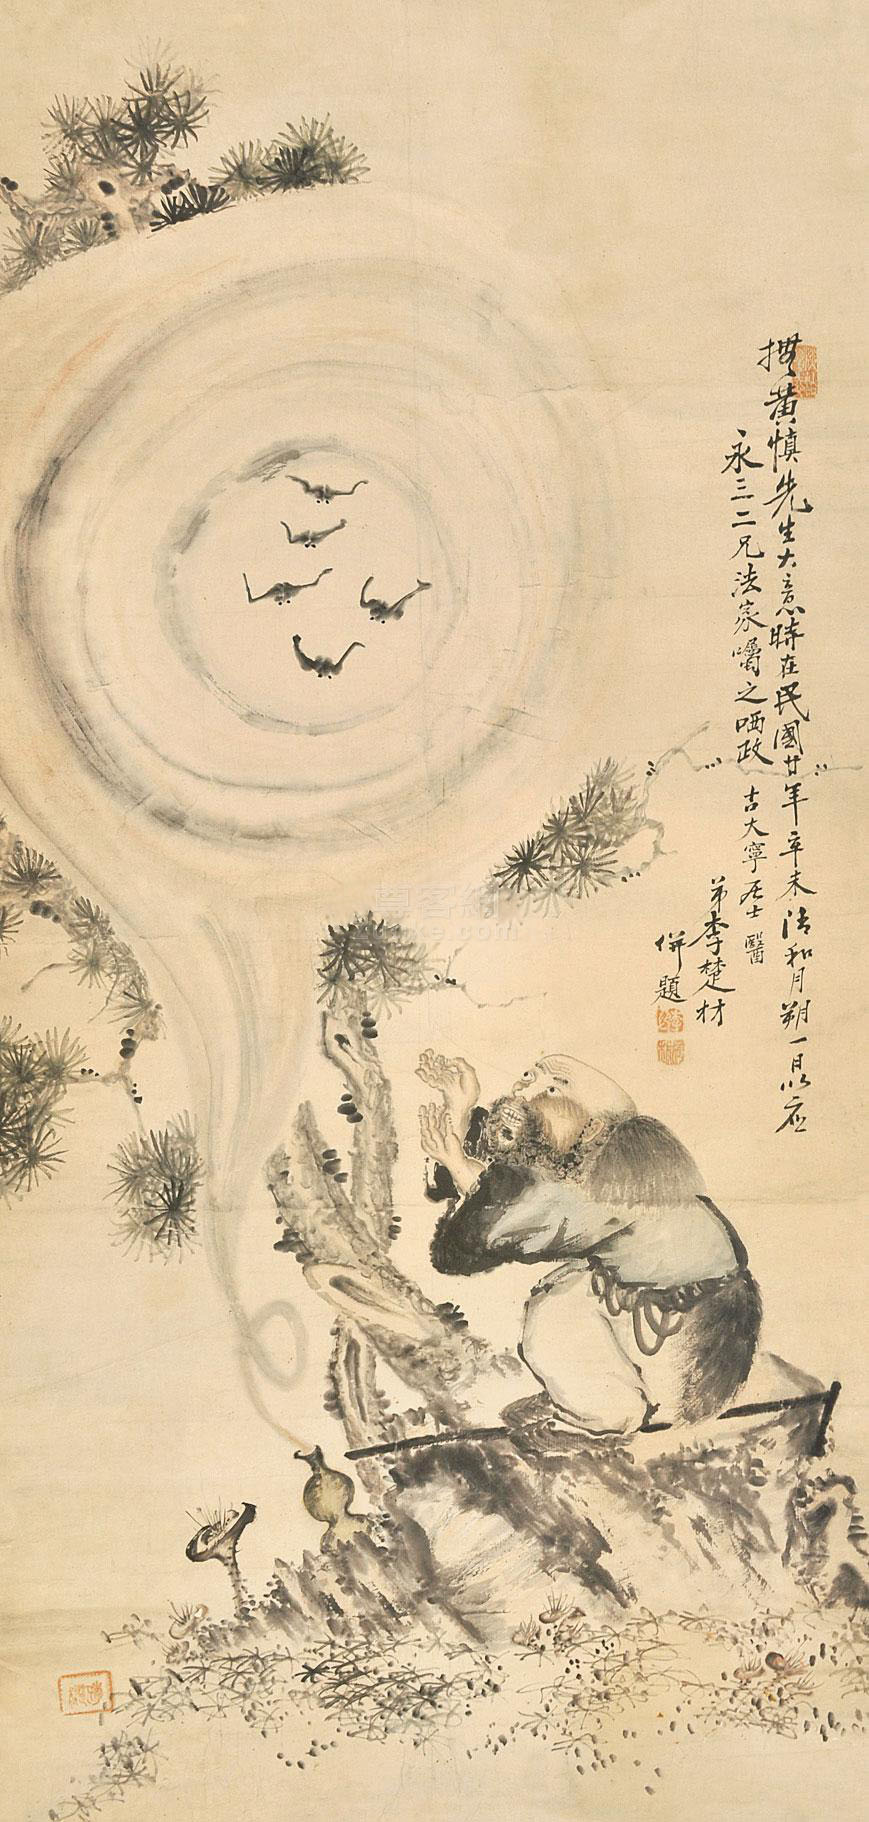 撫黃慎先生大意時在民國廿年辛未清和月朔一日以應
永三二兄法家囑之哂政
古大寧居士醫
弟李楚材
併題